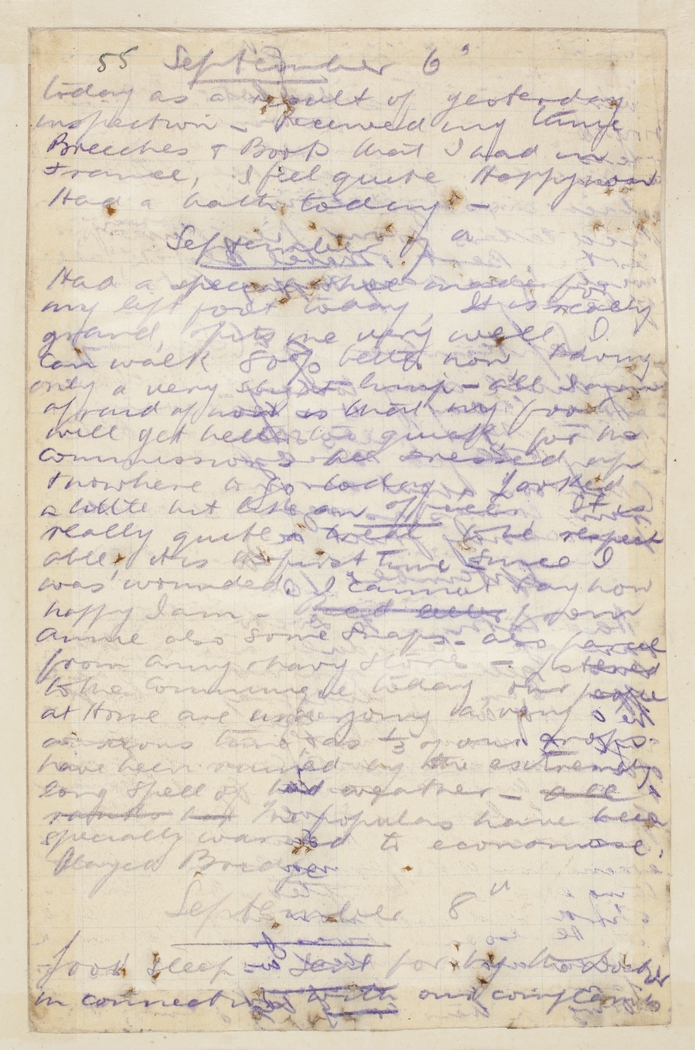 55 September 6"
today as a result of yesterday
inspection - received my
Breeches & Boots that I had in
France, I feel quite Happy now
Had a bath today -
September 7"
Had a special shoe made for
my left foot today, It is really
grand, fits me very well, I
can walk 80% better now having
only a very slight limp - all I am
afraid of now is that my foot
will get better too quick for the
commission all dressed up
& nowhere to go today, looked
a little bit like an officer It is
really quite a treat to be respect
able, it is the first time since I
was wounded. I cannot say how
happy I am - had letter from
Annie also some snaps - also parcel
from Army & Navy Stores - listened
to the Communique today our people
at Home are undergoing a very
anxious time, as 1/3 of our crops
have been ruined by the extremely
long spell of bad weather - all
the populas have been
specially warned to economise.
Played Bridge
September 8"
Took sleep for
in connection with our complaints